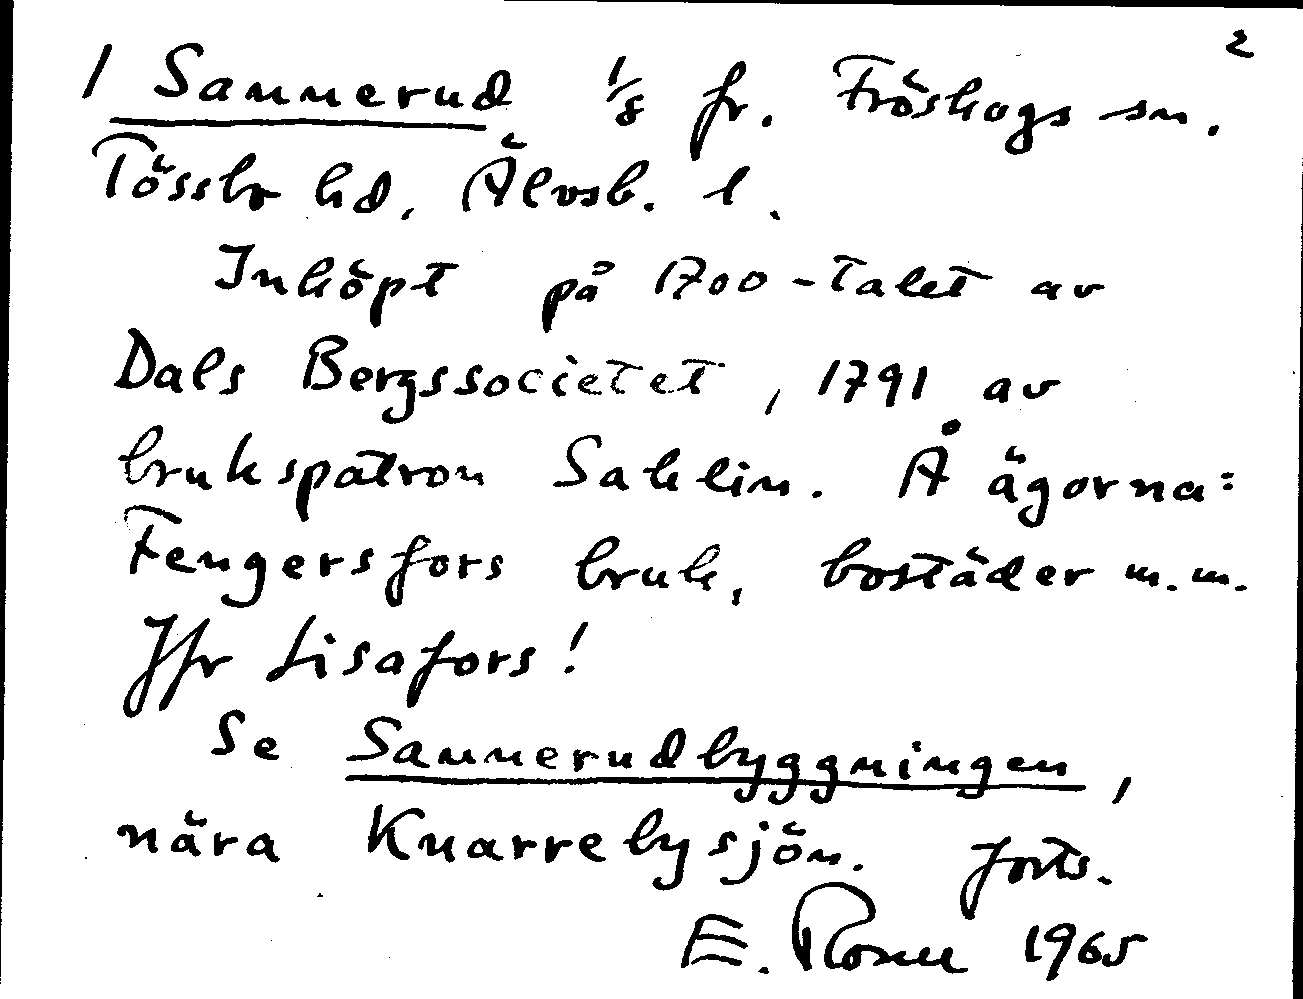 2
1 Sannerud 1/8 fr. Fröskogs sn.
Tössbo hd. Älvsb. l.
Inköpt på 1700-talet av
Dals Bergssocietet, 1791 av
brukspatron Sahlin. Å ägorna:
Fengersfors bruk, bostäder m.m.
Jfr Lisafors!
Se Sannerudbyggningen,
nära Knarrebysjön. forts.
E. 1965